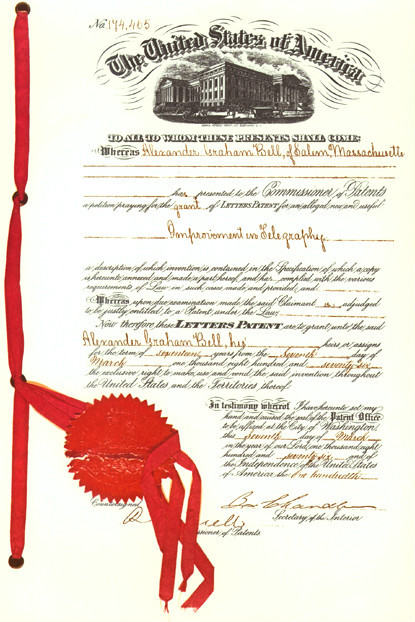 No. 174,465
The United States of America
TO ALL TO WHOM THESE PRESENTS SHALL COME:
Whereas Alexander Graham Bell, of Salem, Massachusetts
has presented to the Commissioner of Patents
a petition praying for the grant of LETTERS PATENT for an alleged new and useful
Improvement in Telegraphy
a description of which invention is contained in the Specification of which a copy
is hereunto annexed and made a part hereof, and has complied with the various
requirements of Law in such cases made and provided, and
Whereas upon due examination made the said Claimant is adjudged
to be justly entitled to a Patent under the Law,
Now therefore these LETTERS PATENT are to grant unto the said
Alexander Graham Bell, his heirs or assigns
for the term of seventeen years from the seventh day of
March one thousand eight hundred and seventy-six
the exclusive right to make, use and vend the said invention throughout
the United States and the Territories thereof.
In testimony whereof I have hereunto set my
hand and caused the seal of the Patent Office
to be affixed at the City of Washington
this seventh day of March
in the year of our Lord, one thousand eight
hundred and seventy-six and of
the Independence of the United States
of America the one hundredth.
Countersigned
Secretary of the Interior
of Patents